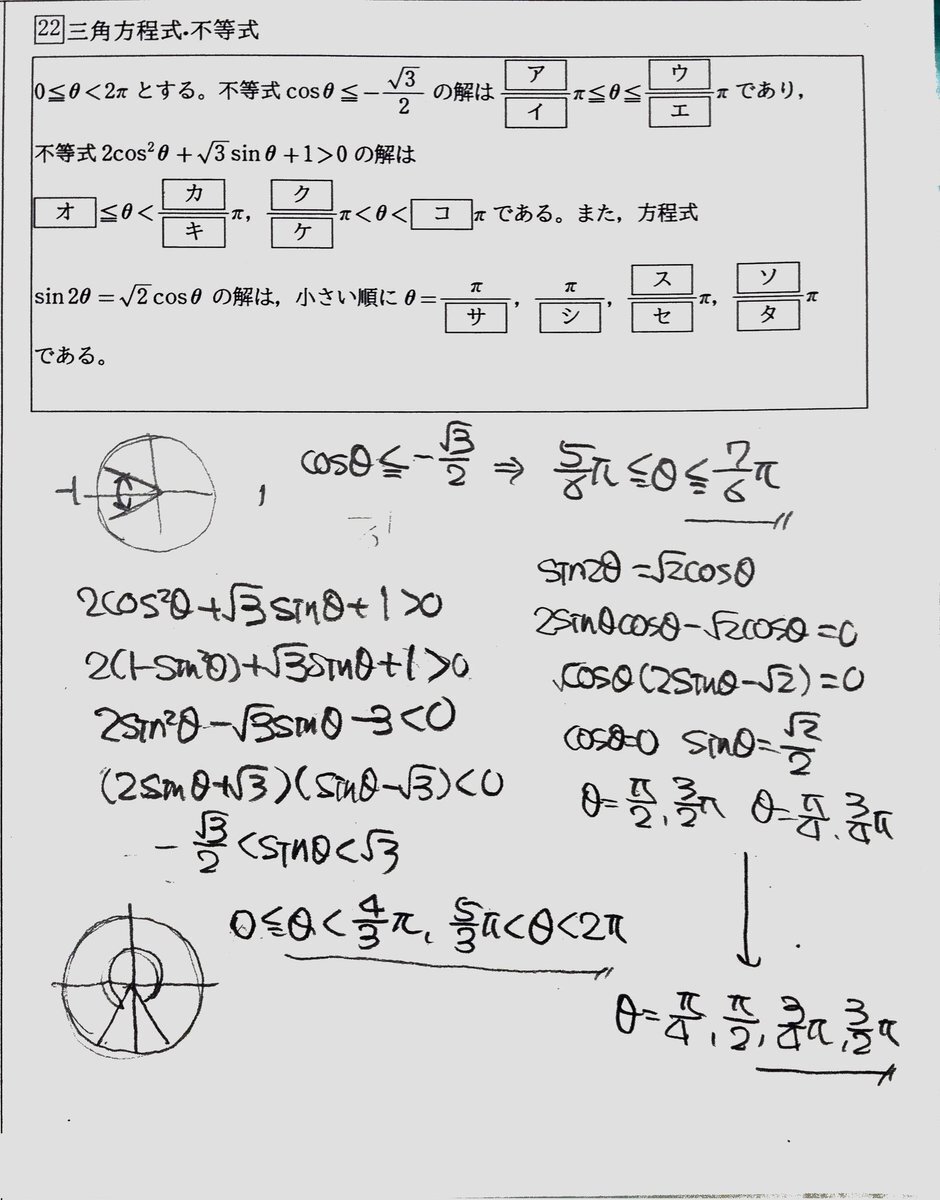 22 三角方程式・不等式
0≦θ<2π とする。不等式 cosθ≦-√3/2 の解は ア/イ π≦θ≦ ウ/エ π であり,
不等式 2cos²θ+√3 sinθ+1>0 の解は
オ ≦θ< カ/キ π, ク/ケ π<θ< コ π である。また, 方程式
sin2θ=√2 cosθ の解は, 小さい順に θ= π/サ, π/シ, ス/セ π, ソ/タ π
である。
-1
1
cosθ≦-√3/2 ⇒ 5/6π≦θ≦7/6π
2cos²θ+√3sinθ+1>0
2(1-sin²θ)+√3sinθ+1>0
2sin²θ-√3sinθ-3<0
(2sinθ+√3)(sinθ-√3)<0
-√3/2<sinθ<√3
0≦θ<4/3π, 5/3π<θ<2π
sin2θ=√2cosθ
2sinθcosθ-√2cosθ=0
cosθ(2sinθ-√2)=0
cosθ=0 sinθ=√2/2
θ=π/2, 3/2π θ=π/4, 3/4π
θ=π/4, π/2, 3/4π, 3/2π